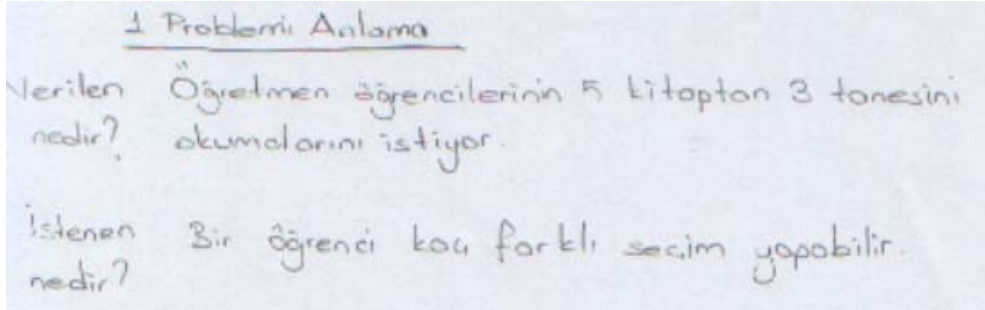 1 Problemi Anlama
Verilen Öğretmen öğrencilerinin 5 kitaptan 3 tanesini
nedir? okumalarını istiyor.
İstenen Bir öğrenci kaç farklı seçim yapabilir.
nedir?